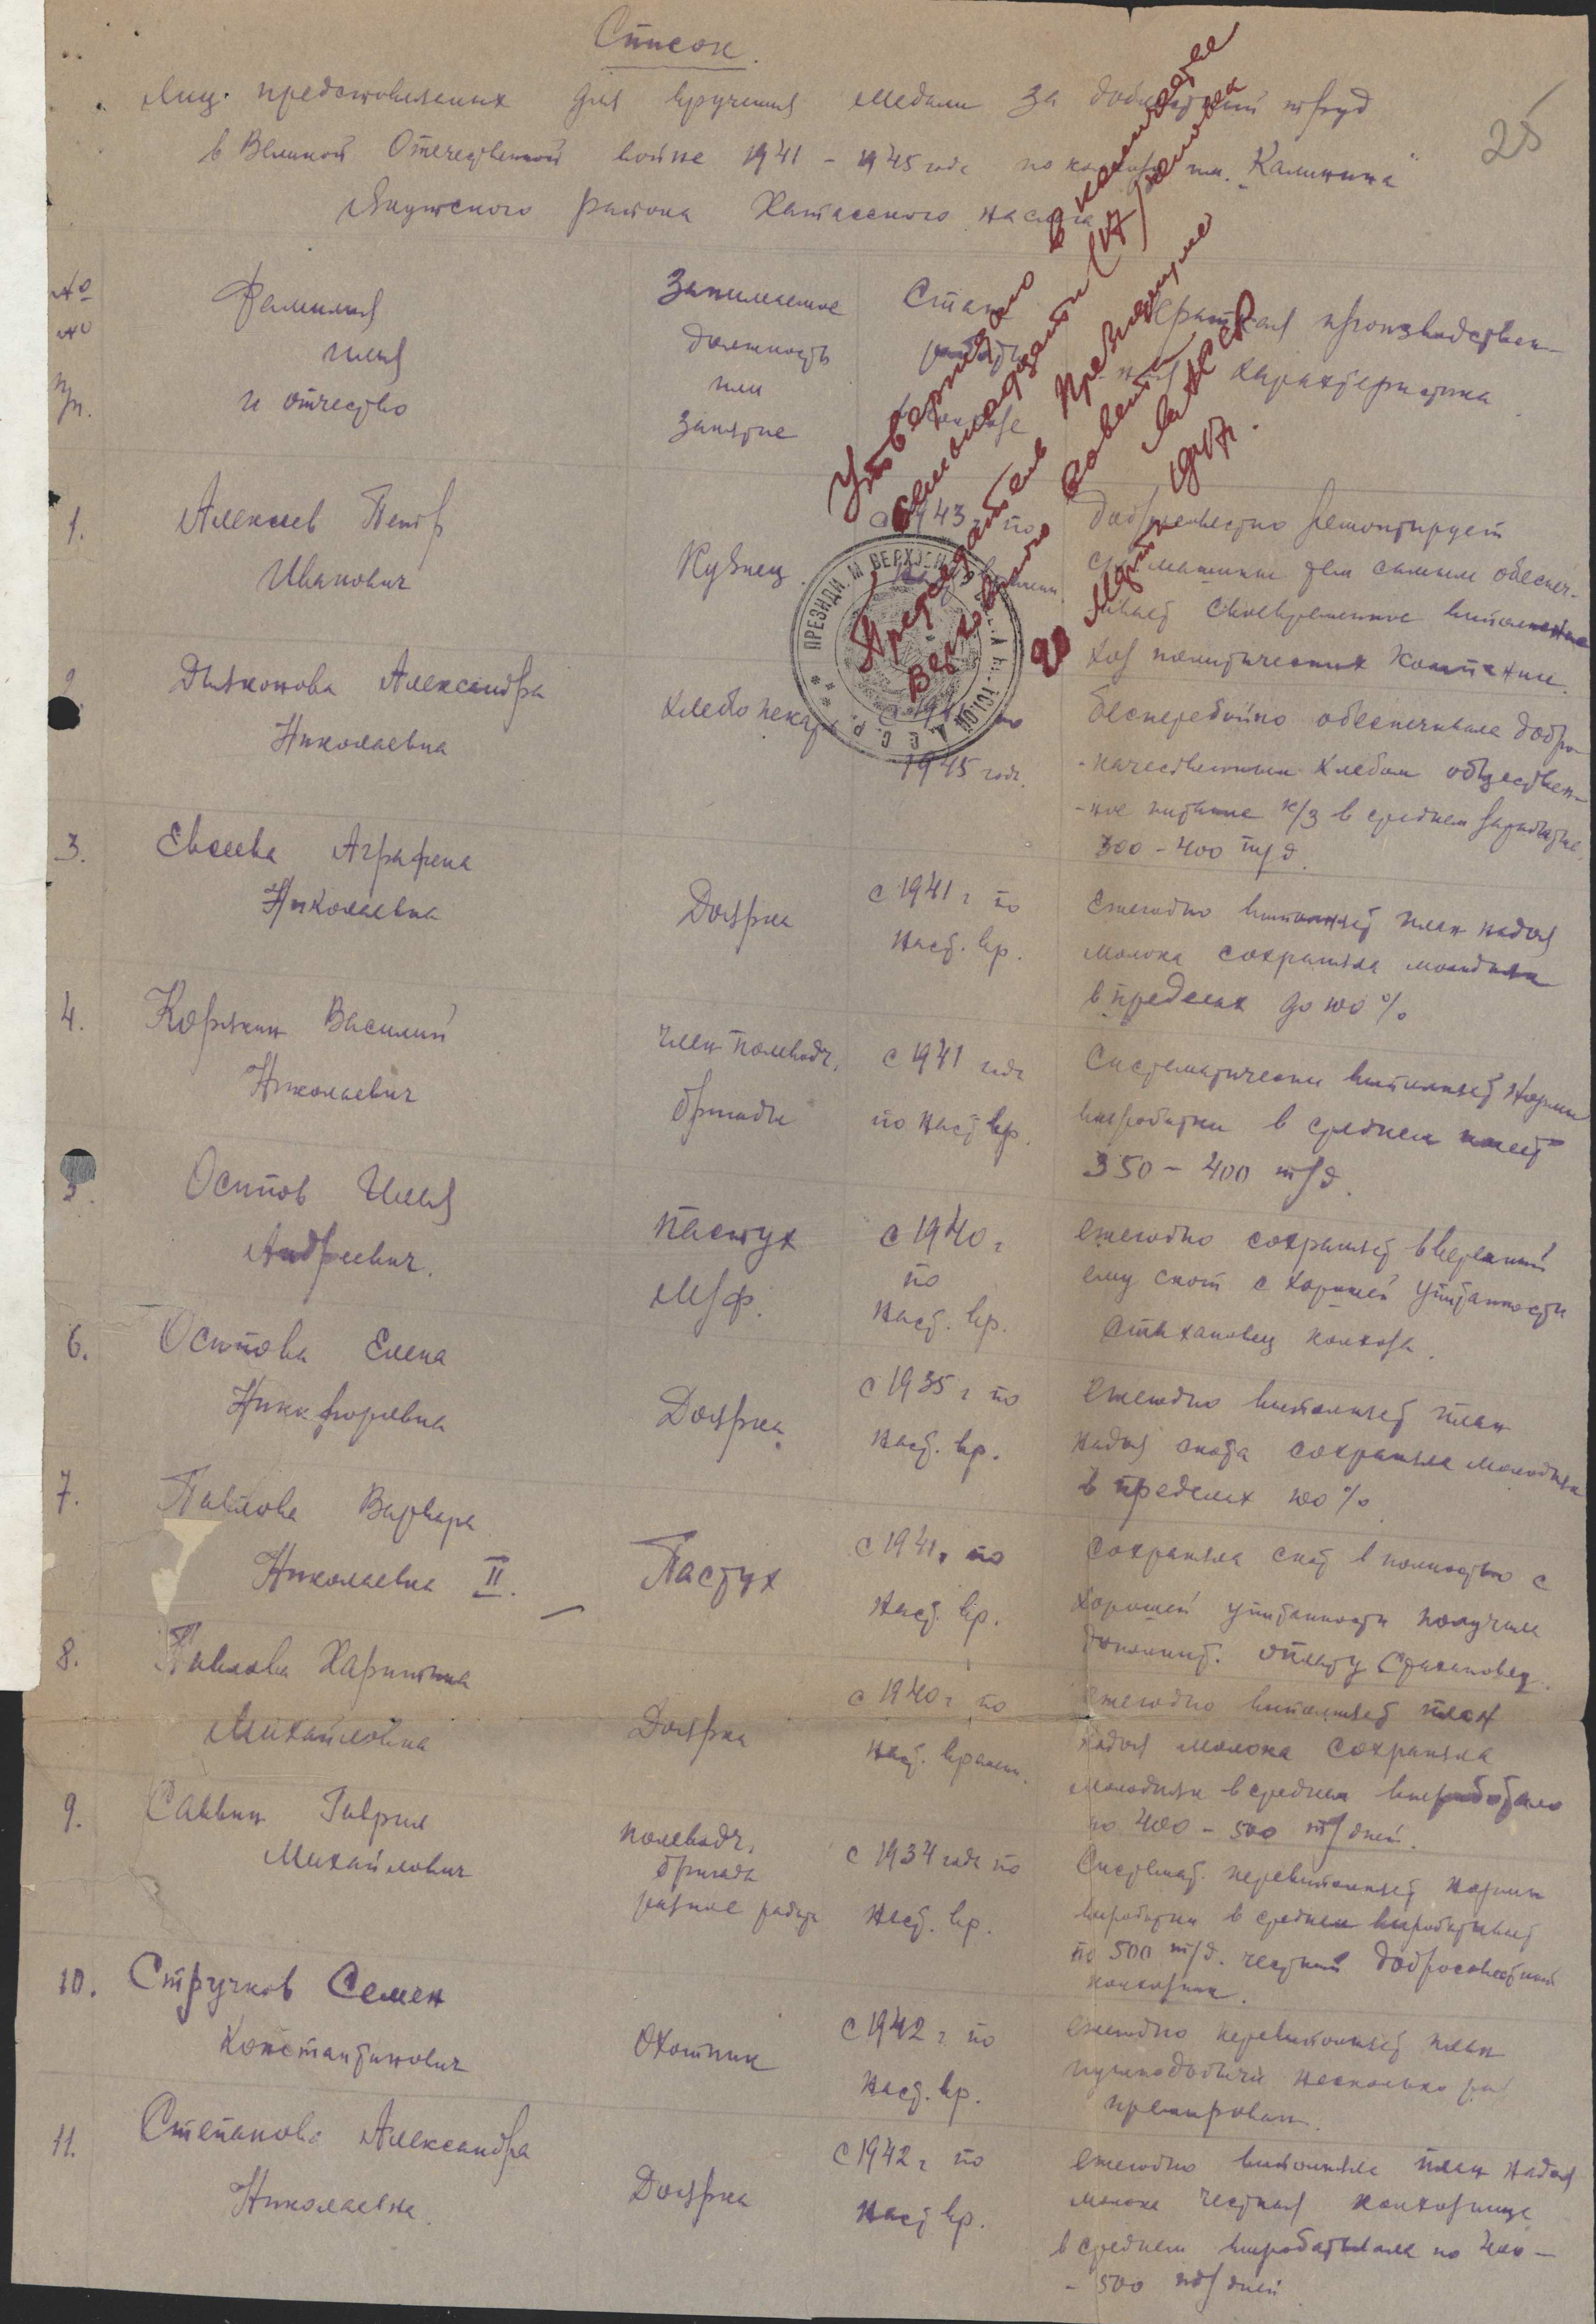 Список.
25
Лиц представленных для вручения медали за доблестный труд
в Великой Отечественной войне 1941 – 1945 года по колхозу им. "Калинина"
Якутского района Хатасского наслега
№ № п/п.
Фамилия имя и отчество
Занимаемая должность или занятие
Стаж работы в колхозе
Краткая производствен-
ная характеристика
Утверждаю в количестве
семнадцати (17) человек
Председатель Президиума
Верховного Совета
ЯАССР
20 марта 1947г.
ПРЕЗИДИУМ ВЕРХОВН
1. Алексеев Петр
Иванович
Кузнец.
с 1943 г. по
Добросовестно ремонтирует
с/х машины тем самым обеспеч-
ивает своевременное выполнение
хоз политических компании.
2. Дьяконова Александра
Николаевна
хлебопекарь
по
1945 год.
Бесперебойно обеспечивала добро-
-качественным хлебом обществен-
-ное питание к/з в среднем
300 – 400 тр/д.
3. Евсеева Аграфена
Николаевна
Доярка
с 1941 г по
наст. вр.
Ежегодно выполняет план надоя
молока сохраняла молодняк
в пределах до 100 %
4. Корякин Василий
Николаевич
член полеводч.
бригады
с 1941 года
по наст вр.
Систематически выполняет нормы
выработки в среднем имеет
350 – 400 тр/д.
5. Осипов Илья
Андреевич.
пастух
МТФ.
с 1940 г
по
наст. вр.
ежегодно сохраняет вверенный
ему скот с хорошей упитанности
Стахановец колхоза.
6. Осипова Елена
Никифоровна
Доярка
с 1935 г по
наст. вр.
Ежегодно выполняет план
надоя скота сохраняла молодняк
в пределах 100 %
7. Павлова Варвара
Николаевна II.
Пастух
с 1941 г. по
наст. вр.
Сохраняла скот в полностью с
хорошей упитанности получила
дополнит. оплату Стахановец.
8. Павлова Харитина
Михайловна
Доярка
с 1940 г по
наст. времени.
ежегодно выполняет план
надоя молока сохраняла
молодняк в среднем выработало
по 400 – 500 тр/дней.
9. Саввин Гаврил
Михайлович
полеводч.
бригада
разное работа
с 1934 года по
наст. вр.
Системат. перевыполняет нормы
выработки в среднем вырабатывает
по 500 тр/д. честный добросовестный
колхозник.
10. Стручков Семен
Константинович
Охотник
с 1942 г по
наст. вр.
ежегодно перевыполняет план
пушнодобычи несколько раз
премирован.
11. Степанова Александра
Николаевна.
Доярка
с 1942 г по
наст вр.
ежегодно выполняла план надоя
молока честная колхозница
в среднем вырабатывала по 400 –
– 500 тр/дней